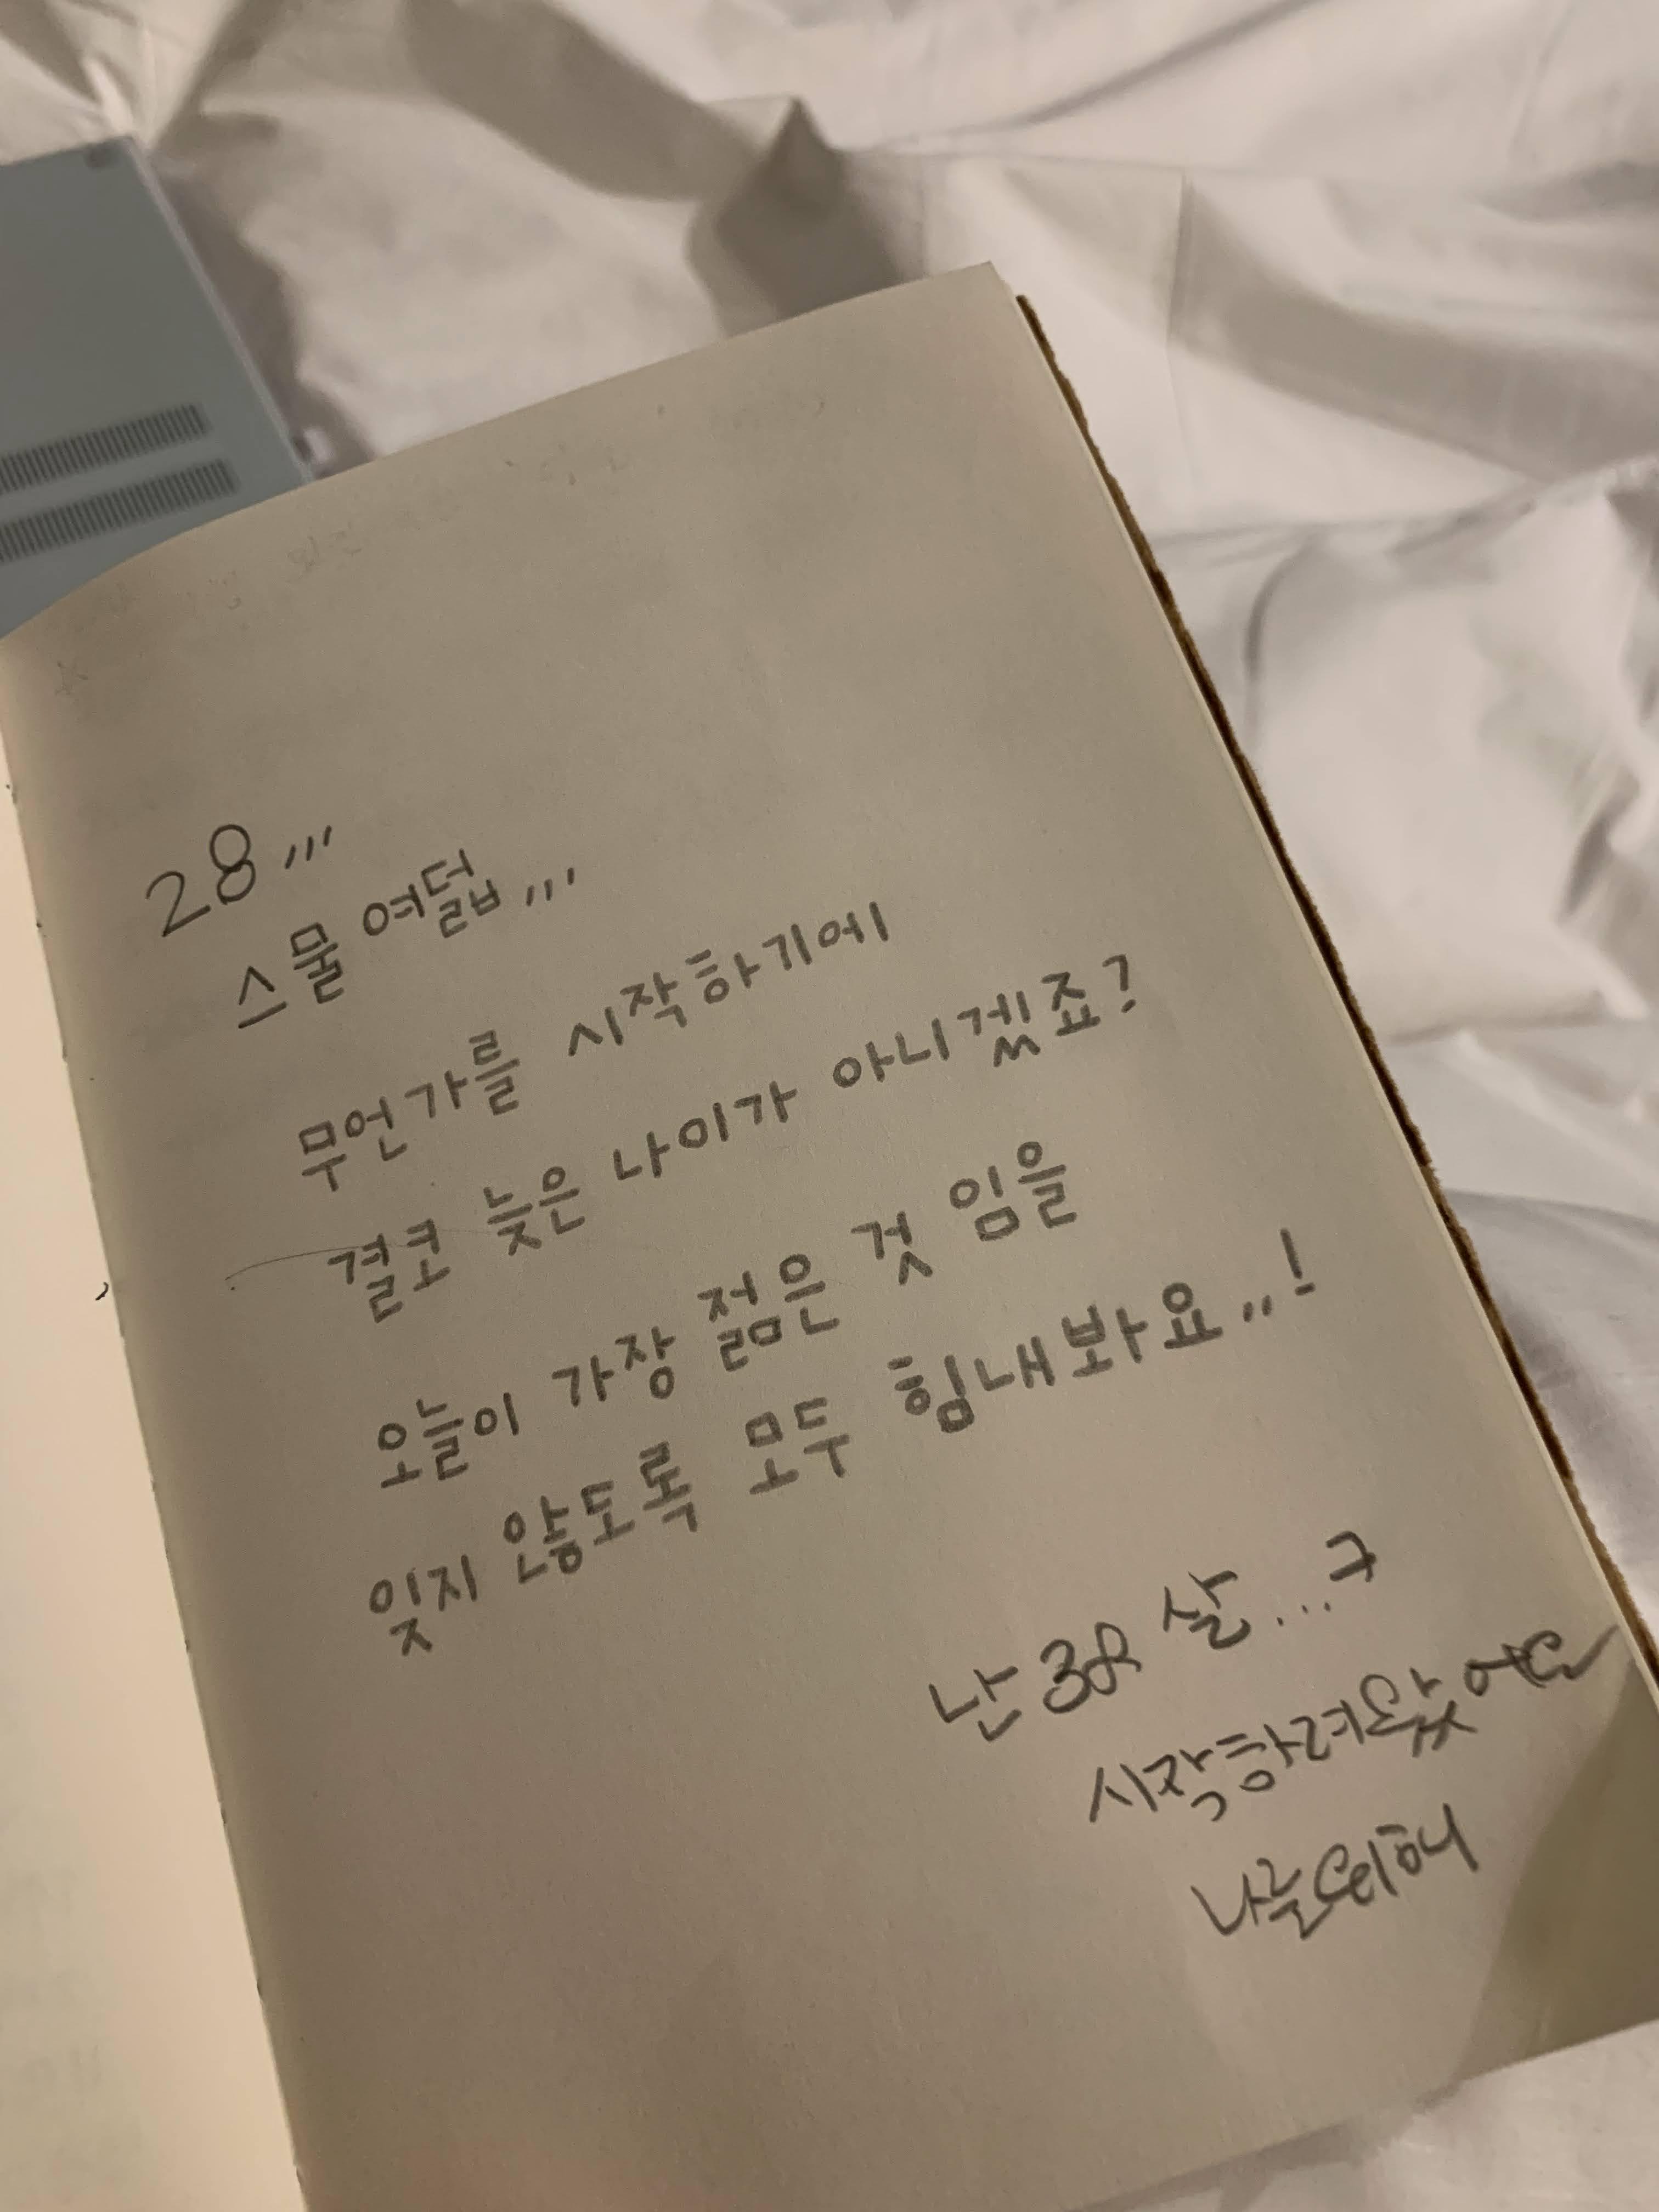 28,,,
스물 여덟,,,
무언가를 시작하기에
결코 늦은 나이가 아니겠죠?
오늘이 가장 젊은 것 임을
잊지 않도록 모두 힘내봐요,,!
난 38 살...ㅋ
시작하려왔어요
나는